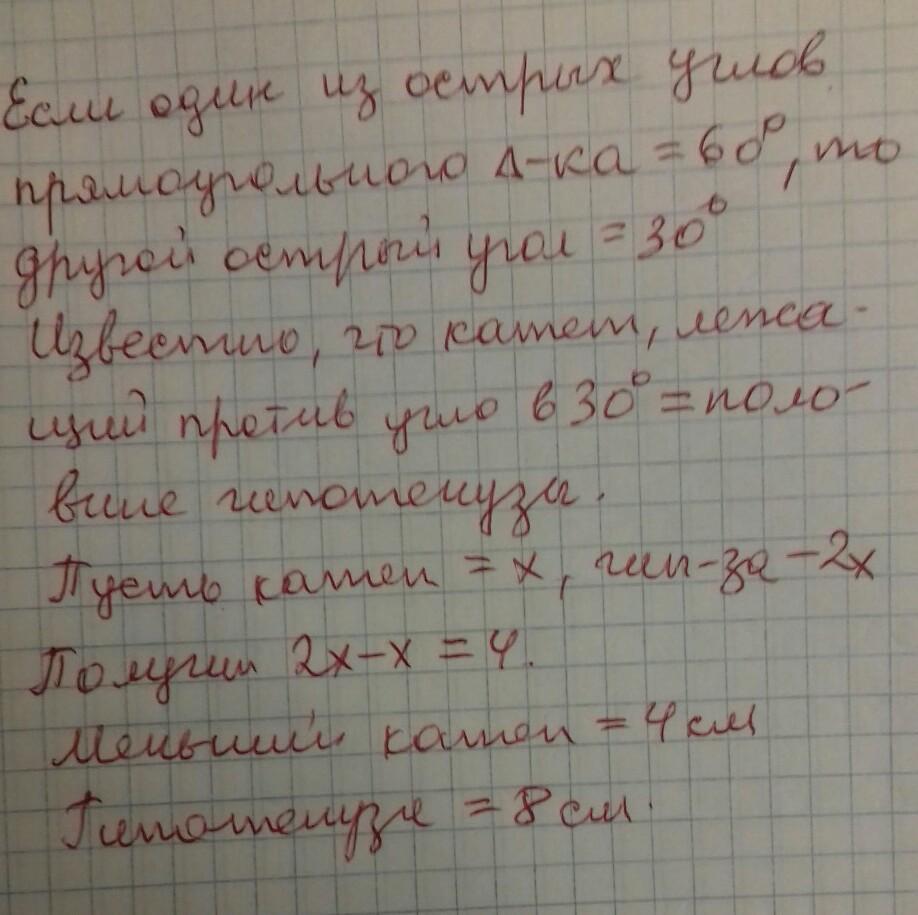 Если один из острых углов
прямоугольного Δ-ка = 60°, то
другой острый угол = 30°
Известно, что катет, лежа-
щий против угло в 30° = поло-
вине гипотенузы.
Пусть катет = x, гип-за - 2x
Получим 2x-x = 4.
Меньший катет = 4 см
Гипотенуза = 8 см.